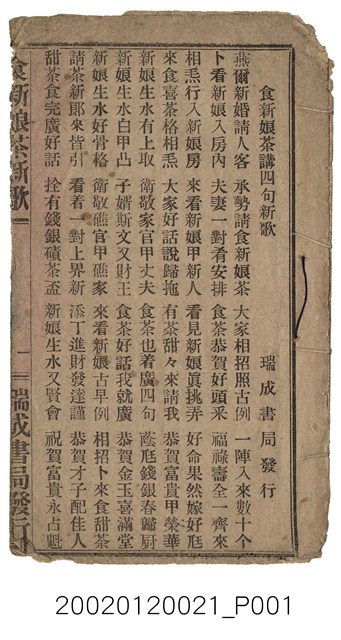 食新娘茶講四句新歌
瑞成書局發行
燕爾新婚請人客 承勢請食新娘茶 大家相招照古例 一陣入來數十个
卜看新娘入房內 夫妻一對肴安排 食茶恭賀好頭采 福祿壽全一齊來
相𤆬行入新娘房 來看新娘甲新人 看見新娘真挑弄 好命果然嫁好尫
來食喜茶格相𤆬 大家好話說歸拖 有茶甜々來請我 恭賀富貴甲榮華
新娘生水有上取 衛敬家官甲丈夫 食茶也着廣四句 蔭尫錢銀春歸厨
新娘生水白甲凸 子婿斯文又財王 食茶好話我就廣 恭賀金玉喜滿堂
新娘生水好骨格 衛敬礁官甲礁家 來看新娘古早例 相招卜來食甜茶
請茶新郎來皆引 看着一對上界新 添丁進財發達謹 恭賀才子配佳人
甜茶食完廣好話 拴有錢銀磧茶盃 新娘生水又賢會 祝賀富貴永占魁
食新娘茶新歌
一
瑞成書局發行
20020120021_P001